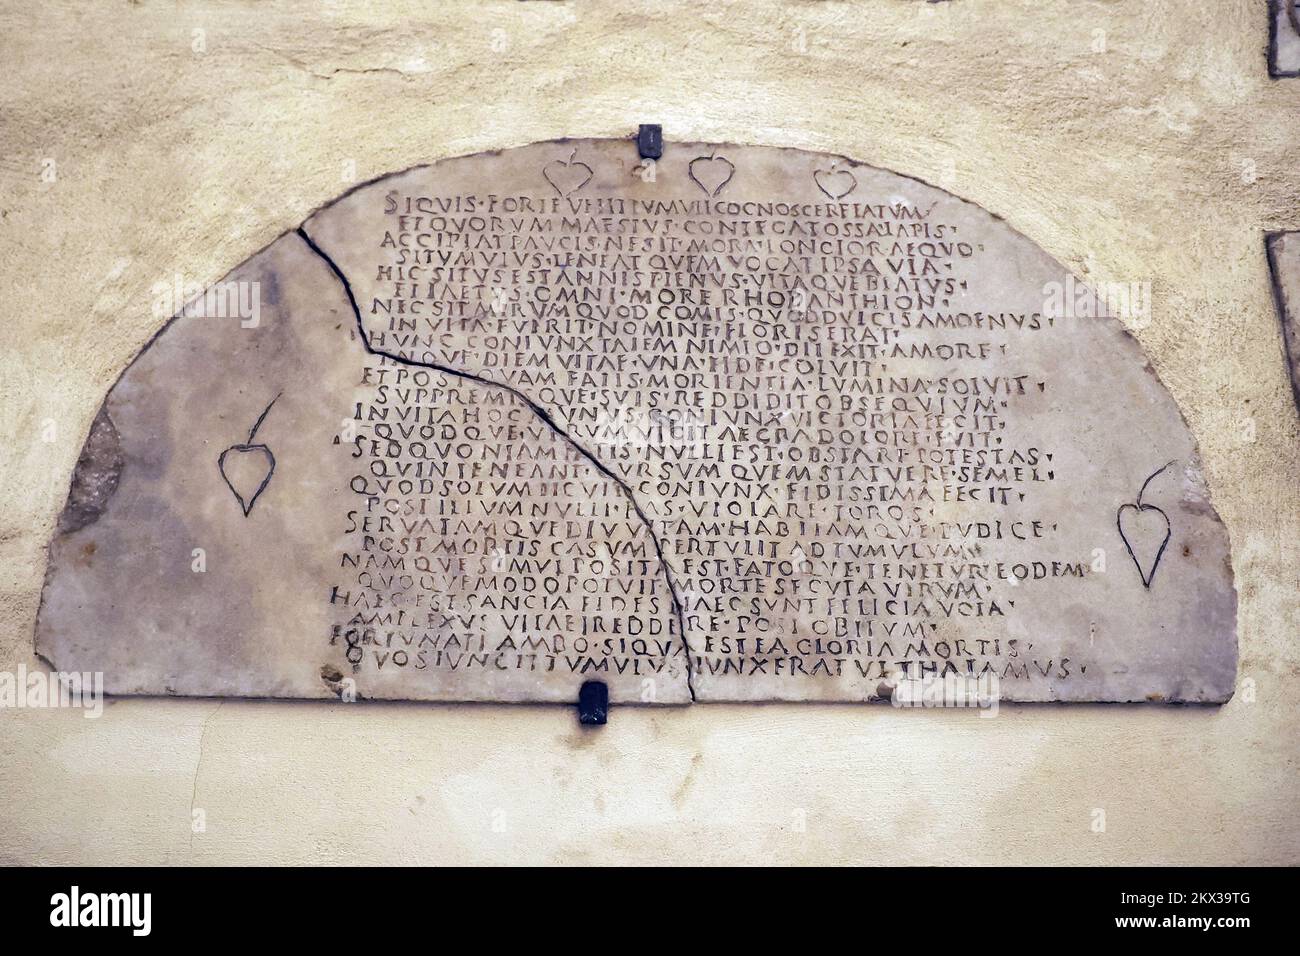 SIQVIS·FORTE VELIT TVMVLI COGNOSCERE FATVM
ET QVORVM MAESTVS·CONTEGAT OSSA LAPIS·
ACCIPIAT PAVCIS·NE SIT·MORA·LONGIOR AEQVO·
SI TVMVLVS·TENEAT QVEM VOCAT IPSA VIA·
HIC SITVS EST ANNIS PLENVS·VITAQVE BEATVS·
ET LAETVS·OMNI·MORE RHODANTHION·
NEC SIT MIRVM QVOD COMIS·QVOD DVLCIS AMOENVS·
IN VITA FVERIT·NOMINE·FLORIS ERAT·
HVNC CONIVNX TALEM NIMIO·DILEXIT·AMORE·
DIEM VITAE·VNA·FIDE·COLVIT·
ET POSTQVAM FATIS·MORIENTIA·LVMINA·SOLVIT·
SVPPREMVMQVE·SVIS·REDDIDIT OBSEQVIVM·
INVITA HOC MVNVS·CONIVNX VICTORIA FECIT·
QVODQVE·VIRVM VICIT AEGRA DOLORE FVIT·
SED QVONIAM FATIS·NVLLI EST·OBSTARE POTESTAS·
QVIN TENEANT·CVRSVM QVEM STATVERE·SEMEL·
QVOD SOLVM LICVIT·CONIVNX·FIDISSIMA FECIT·
POST ILLVM NVLLI FAS·VIOLARE·TOROS·
SERVATAMQVE DIV VITAM·HABITAMQVE PVDICE·
POST MORTIS CASVM PERTVLIT AD TVMVLVM·
NAMQVE SIMVL POSITA EST·FATOQVE·TENETVR EODEM·
QVOQVE MODO POTVIT MORTE SECVTA VIRVM·
HAEC EST SANCTA FIDES HAEC SVNT FELICIA VOTA·
AMPLEXVS VITAE REDDERE·POST OBITVM·
FORTVNATI AMBO·SIQVA EST EA GLORIA MORTIS·
QVOS IVNGIT TVMVLVS IVNXERAT VT THALAMVS·
alamy
Image ID: 2KX39TG
www.alamy.com